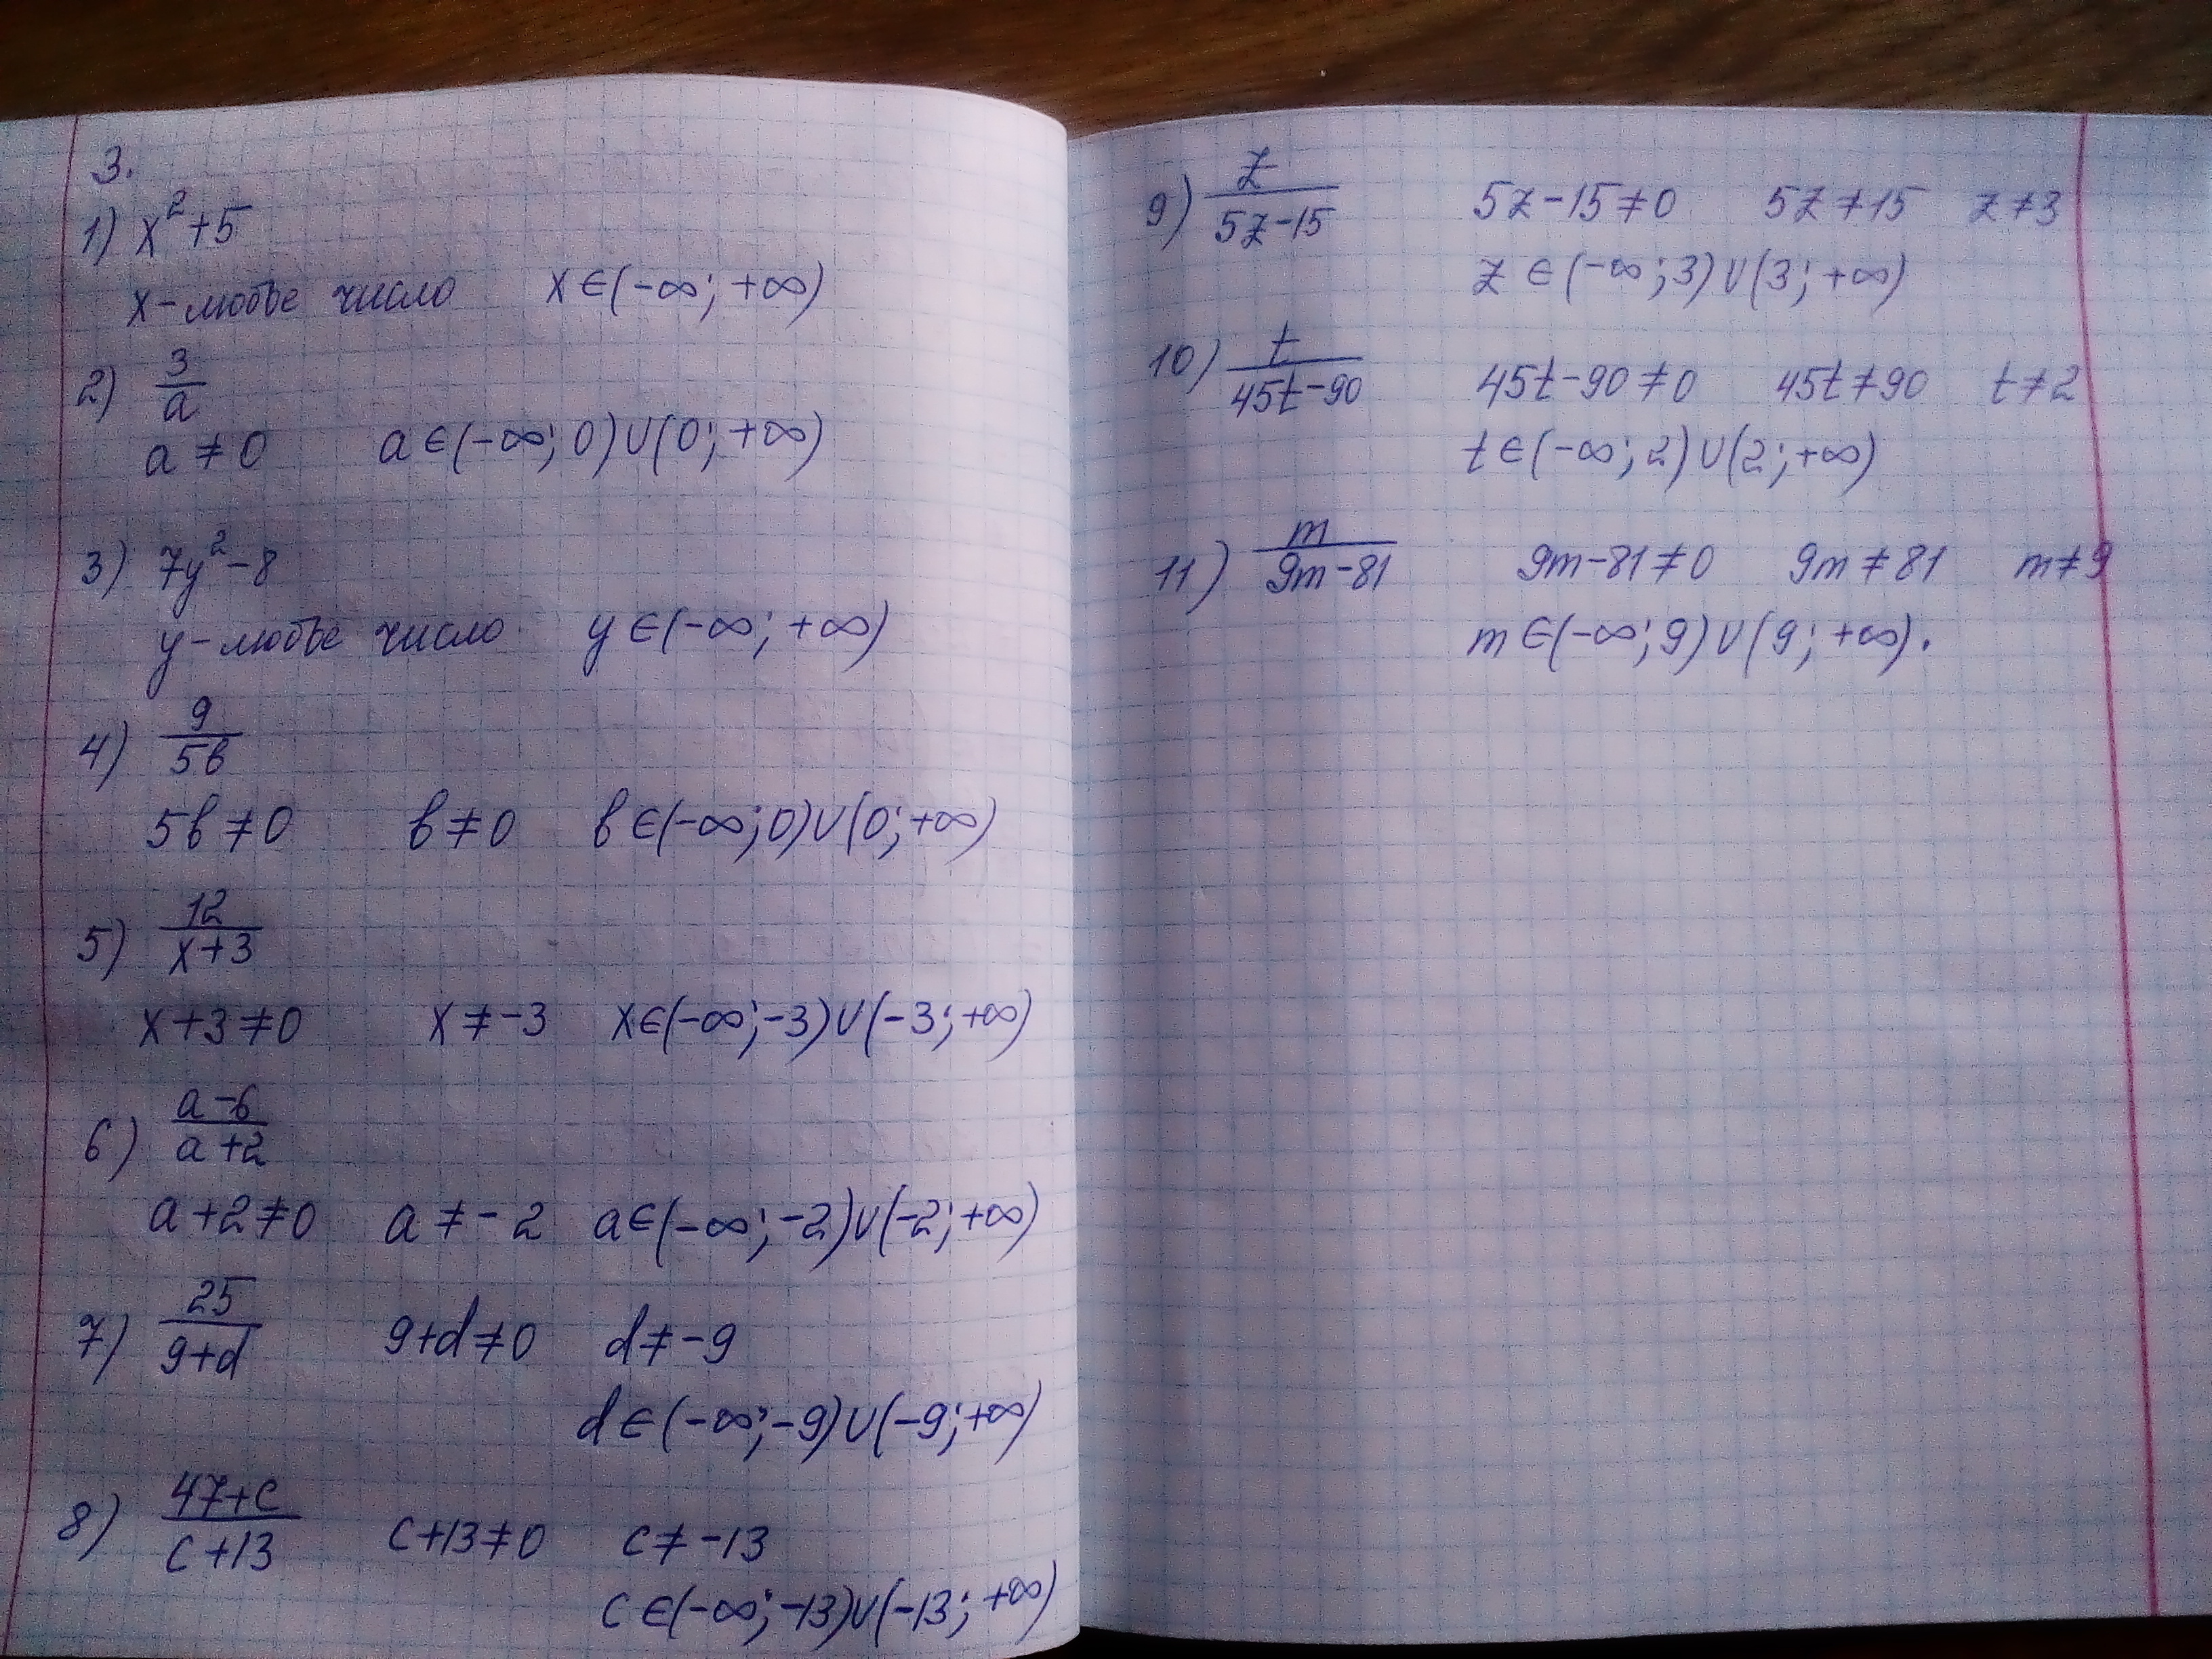 3.
1) x²+5
x-любое число x∈(-∞; +∞)
2) 3/a
a≠0 a∈(-∞; 0)∪(0; +∞)
3) 7y²-8
y-любое число y∈(-∞; +∞)
4) 9/5b
5b≠0 b≠0 b∈(-∞; 0)∪(0; +∞)
5) 12/(x+3)
x+3≠0 x≠-3 x∈(-∞; -3)∪(-3; +∞)
6) (a-6)/(a+2)
a+2≠0 a≠-2 a∈(-∞; -2)∪(-2; +∞)
7) 25/(9+d) 9+d≠0 d≠-9
d∈(-∞; -9)∪(-9; +∞)
8) (47+c)/(c+13) c+13≠0 c≠-13
c∈(-∞; -13)∪(-13; +∞)
9) z/(5z-15) 5z-15≠0 5z≠15 z≠3
z∈(-∞; 3)∪(3; +∞)
10) t/(45t-90) 45t-90≠0 45t≠90 t≠2
t∈(-∞; 2)∪(2; +∞)
11) m/(9m-81) 9m-81≠0 9m≠81 m≠9
m∈(-∞; 9)∪(9; +∞).